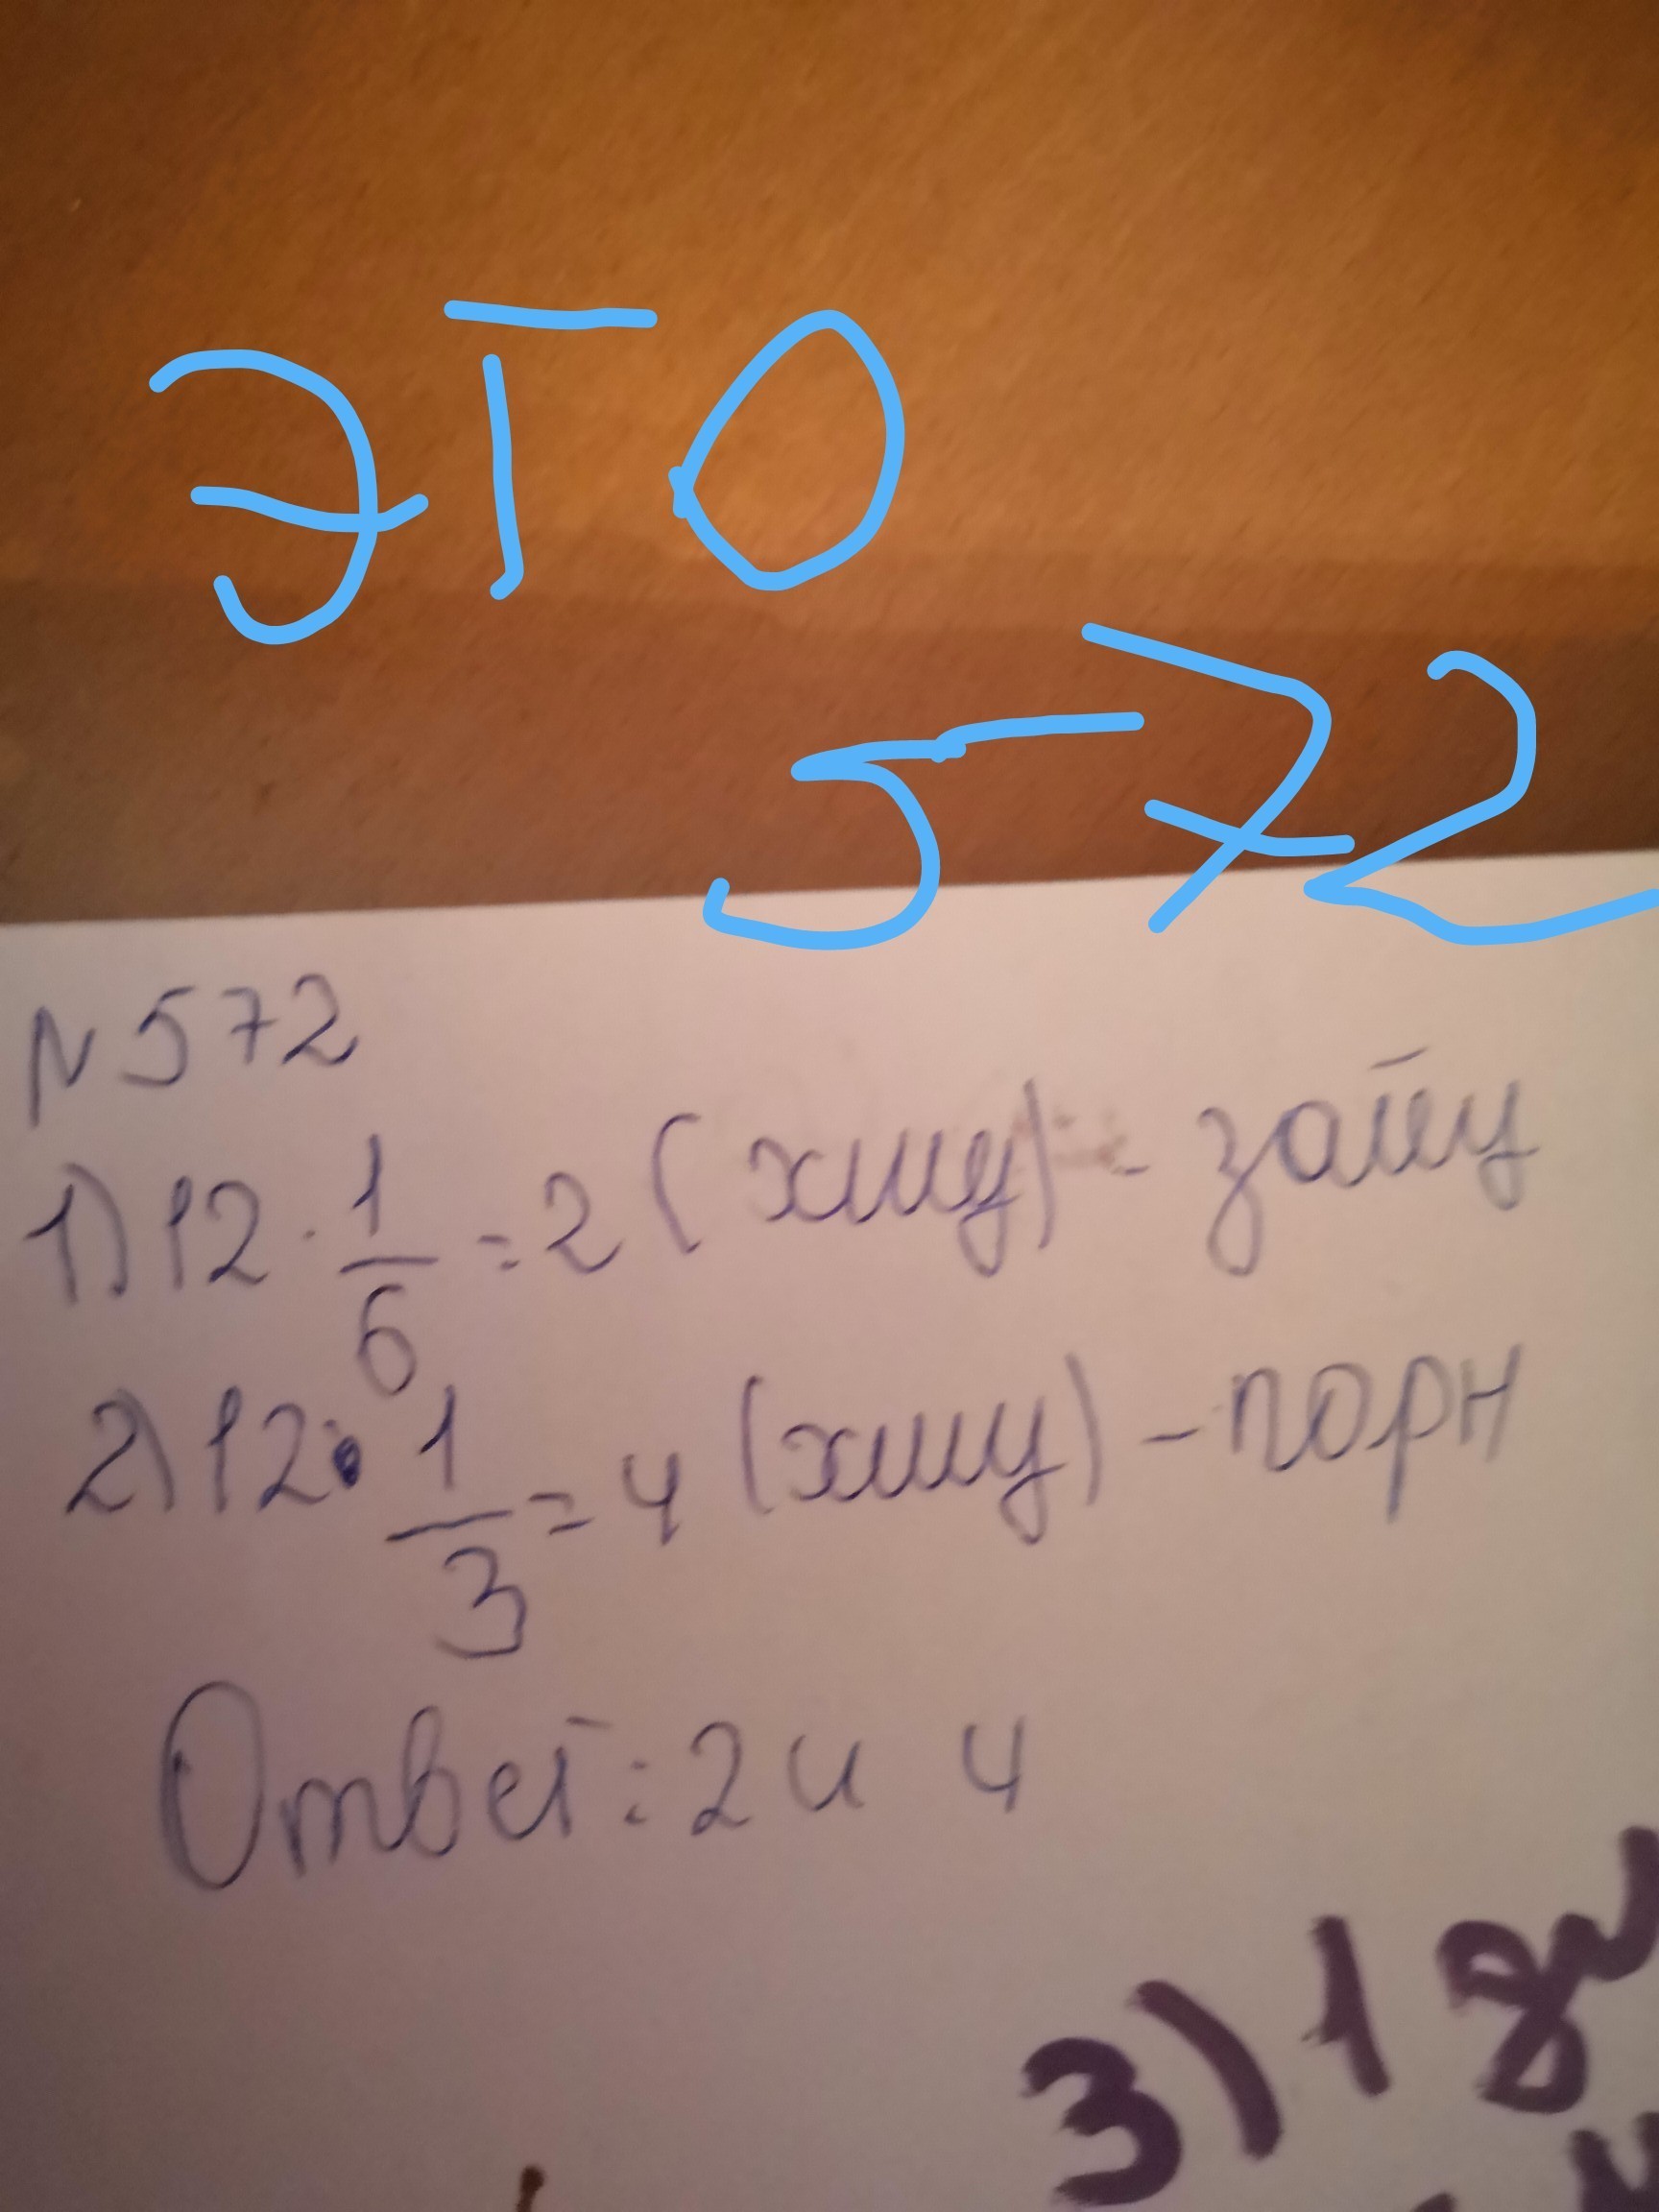 ЭТО
572
N 572
1) 12 · 1/6 = 2 (хищу) - зайцу
2) 12 · 1/3 = 4 (хищу) - порн
Ответ: 2 и 4
3) 1